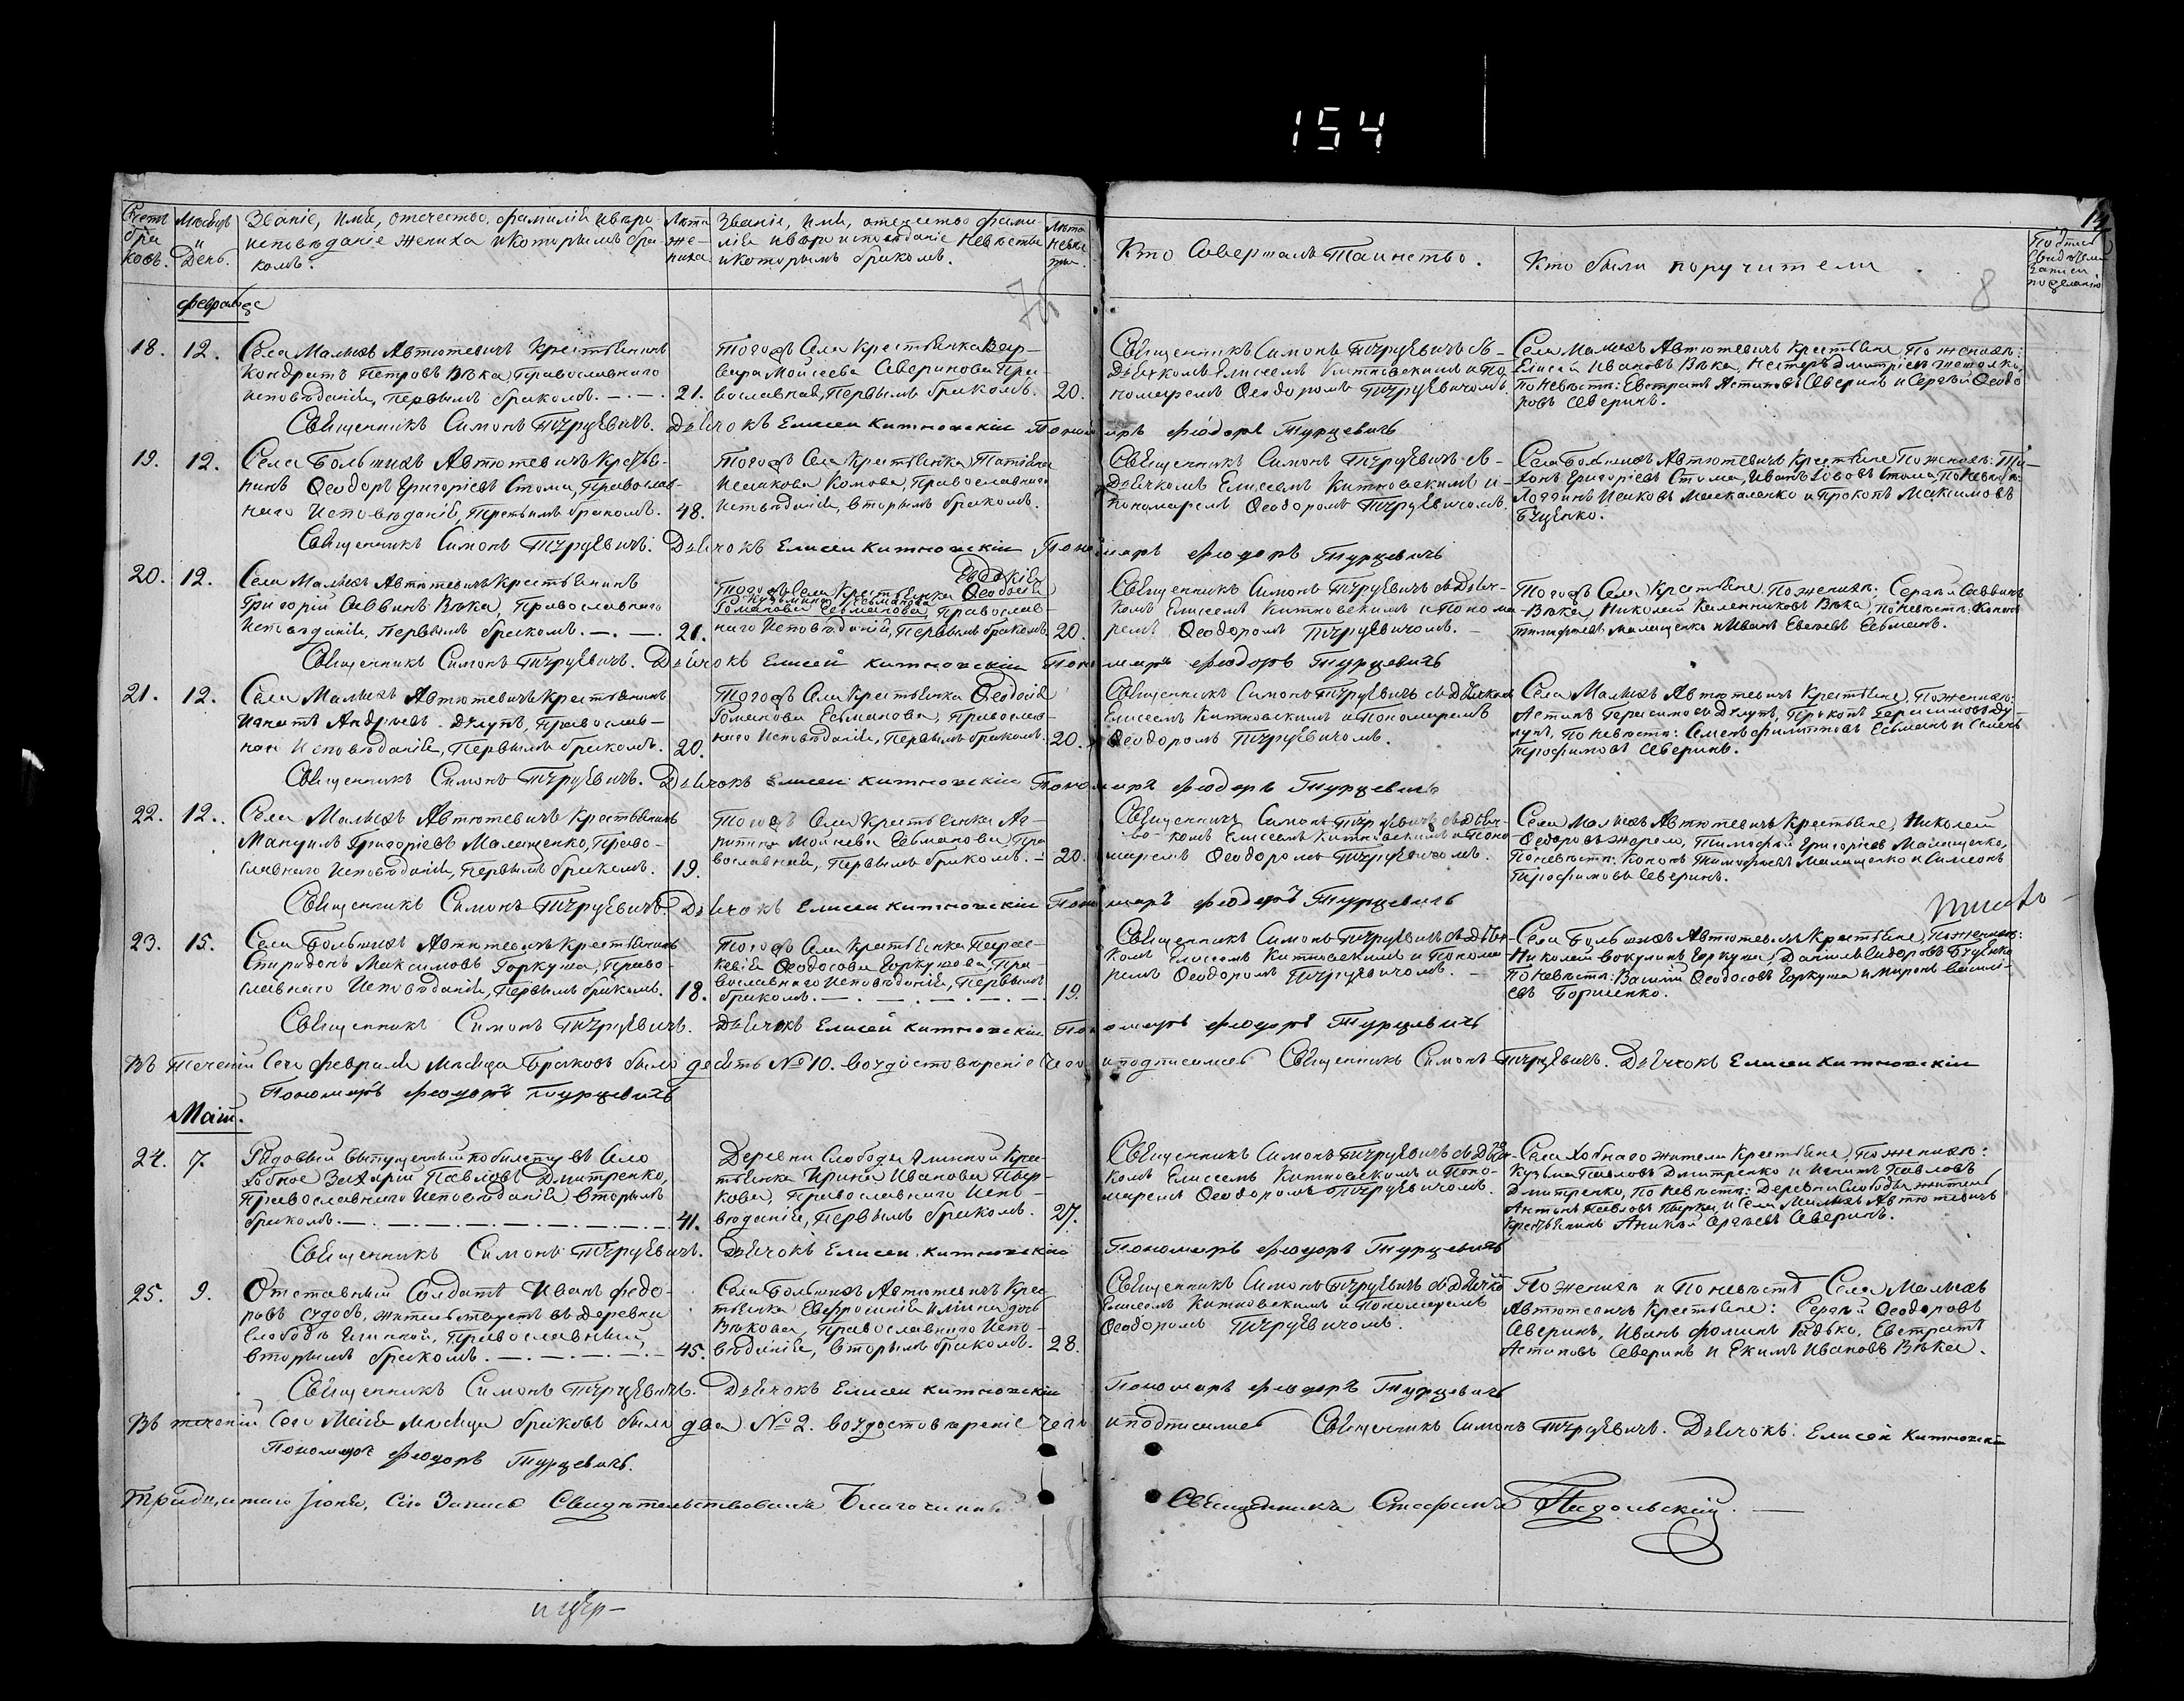 154
Счетъ браковъ.
Мѣсяцъ и День.
Званіе, имя, отечество, фамилія и вѣро-
исповѣданіе жениха и которымъ бра-
комъ.
Лѣта же-
ниха
Званіе, имя, отечество фами-
лія и вѣроисповѣданіе невѣсты
и которымъ бракомъ.
Лѣта невѣсты.
Кто Совершалъ Таинство.
Кто были поручители.
8
февраль
18. 12. Села Малыхъ Автютевичъ Крестьянинъ
Кондратъ Петровъ Вѣка, Православнаго
исповѣданія, первымъ бракомъ. 21.
Тогожъ Села Крестьянка Вар-
вара Моисеева Северинова Пра-
вославная, Первымъ бракомъ. 20.
Священникъ Симонъ Турцевичъ съ
Дьячкомъ Елисеемъ Китновскимъ и По-
номаремъ Ѳеодоромъ Турцевичомъ.
Села Малыхъ Автютевичъ Крестьяне, По женихѣ:
Елисей Ивановъ Вѣка, Нестеръ Дмитріевъ
по Невѣстѣ: Евстратъ Астаповъ Северинъ и Сергѣй Ѳеодо
ровъ Северинъ.
Священникъ Симонъ Турцевичъ. Дьячокъ Елисей Китновскій Пономарь Фіодоръ Турцевичъ
19. 12. Села Большихъ Автютевичъ Крестья-
нинъ Ѳеодоръ Григоріевъ Стома, Православ-
наго Исповѣданія, Третьимъ бракомъ. 48.
Тогожъ Села Крестьянка Татіяна
Исакова Комова, Православнаго
Исповѣданія, вторымъ бракомъ.
Священникъ Симонъ Турцевичъ съ
Дьячкомъ Елисеемъ Китновскимъ и
Пономаремъ Ѳеодоромъ Турцевичомъ.
Села Большихъ Автютевичъ Крестьяне По женихѣ: Ти-
хонъ Григоріевъ Стома, Иванъ Стома, По Невѣстѣ:
Исаковъ Москаленко и Прокопъ Максимовъ
Буценко.
Священникъ Симонъ Турцевичъ. Дьячокъ Елисей Китновскій Пономарь Фіодоръ Турцевичъ
20. 12. Села Малыхъ Автютевичъ Крестьянинъ
Григорій Саввинъ Вѣка, Православнаго
Исповѣданія, первымъ бракомъ. 21.
Евдокія
Тогожъ Села Крестьянка Ѳеодосія
Кузьмина Есьманова
Романова Есьманова, Православ-
наго Исповѣданія, Первымъ бракомъ. 20.
Священникъ Симонъ Турцевичъ съ Дьяч-
комъ Елисеемъ Китновскимъ и Понома
ремъ Ѳеодоромъ Турцевичомъ.
Тогожъ Села Крестьяне По женихѣ: Сергѣй Саввинъ
Вѣка, Николай Каленниковъ Вѣка, по Невѣстѣ: Кононъ
Тимофіевъ Малащенко и Иванъ Есьманъ.
Священникъ Симонъ Турцевичъ. Дьячокъ Елисей Китновскій Пономарь Фіодоръ Турцевичъ
21. 12. Села Малыхъ Автютевичъ Крестьянинъ
Игнатъ Андріевъ Дулупъ, Православ-
наго Исповѣданія, Первымъ бракомъ. 20.
Тогожъ Села Крестьянка Ѳеодосія
Романова Есьманова, Православ-
наго Исповѣданія, Первымъ бракомъ. 20.
Священникъ Симонъ Турцевичъ съ Дьячкомъ
Елисеемъ Китновскимъ и Пономаремъ
Ѳеодоромъ Турцевичомъ.
Села Малыхъ Автютевичъ Крестьяне, По женихѣ:
Астапъ Герасимовъ Дулупъ, Прокопъ Герасимовъ Ду-
лупъ, По Невѣстѣ: Семенъ Филиповъ Есьманъ и Семенъ
Трофимовъ Северинъ.
Священникъ Симонъ Турцевичъ. Дьячокъ Елисей Китновскій Пономарь Фіодоръ Турцевичъ
22. 12. Села Малыхъ Автютевичъ Крестьянинъ
Мануилъ Григоріевъ Малащенко, Право-
славнаго Исповѣданія, Первымъ бракомъ. 19.
Тогожъ Села Крестьянка Аг-
рипина Есьманова, Пра
вославная, Первымъ бракомъ. 20.
Священникъ Симонъ Турцевичъ съ Дьяч-
комъ Елисеемъ Китновскимъ и Поно
маремъ Ѳеодоромъ Турцевичомъ.
Села Малыхъ Автютевичъ Крестьяне, Николай
Ѳеодоровъ Тимофей Григоріевъ Малащенко,
По Невѣстѣ: Кононъ Тимофіевъ Малащенко и Симеонъ
Трофимовъ Северинъ.
Священникъ Симонъ Турцевичъ. Дьячокъ Елисей Китновскій Пономарь Фіодоръ Турцевичъ
23. 15. Села Большихъ Автютевичъ Крестьянинъ
Спиридонъ Максимовъ Горкуша, Право-
славнаго Исповѣданія, Первымъ бракомъ. 18.
Тогожъ Села Крестьянка Парас-
кевія Ѳеодосова Горкушова, Пра-
вославнаго Исповѣданія, Первымъ
бракомъ. 19.
Священникъ Симонъ Турцевичъ съ Дьяч-
комъ Елисеемъ Китновскимъ и Понома
ремъ Ѳеодоромъ Турцевичомъ.
Села Большихъ Автютевичъ Крестьяне, По женихѣ:
Николай Горкуша, Даніилъ Сидоровъ Буценко
По Невѣстѣ: Василій Ѳеодосовъ Горкуша и Миронъ Василі-
евъ Борисенко.
Священникъ Симонъ Турцевичъ. Дьячокъ Елисей Китновскій Пономарь Фіодоръ Турцевичъ
Въ теченіи Сего февраля Мѣсяца Браковъ было десять №10. во удостовѣреніе чего и подписались Священникъ Симонъ Турцевичъ. Дьячокъ Елисей Китновскій
Пономарь Фіодоръ Турцевичъ
Маій.
24. 7. Рядовый выпущенный по билету въ Село
Хобное Захарій Павловъ Дмитренко,
Православнаго Исповѣданія Вторымъ
бракомъ. 41.
Деревни Слободы Крес-
тьянка Ирина Иванова
Православнаго Испо-
вѣданія, Первымъ бракомъ. 27.
Священникъ Симонъ Турцевичъ съ Дьяч-
комъ Елисеемъ Китновскимъ и Поно-
маремъ Ѳеодоромъ Турцевичомъ.
Села Хобнаго жители Крестьяне, По женихѣ:
Кузьма Павловъ Дмитренко и Игнатъ Павловъ
Дмитренко, По Невѣстѣ: Деревни Слободы житель
Антонъ Павловъ и Села Малыхъ Автютевичъ
Крестьянинъ Аникѣй Сергѣевъ Северинъ.
Священникъ Симонъ Турцевичъ. Дьячокъ Елисей Китновскій Пономарь Фіодоръ Турцевичъ
25. 9. Отставный Солдатъ Иванъ Федо-
ровъ Судосъ, жительствуетъ въ деревни
Слободѣ Православный
вторымъ бракомъ. 45.
Села Большихъ Автютевичъ Крес-
тьянка Евфросинія Ильина дочь
Вѣкова, Православнаго Испо-
вѣданія, вторымъ бракомъ. 28.
Священникъ Симонъ Турцевичъ съ Дьячко
Елисеемъ Китновскимъ и Пономаремъ
Ѳеодоромъ Турцевичомъ.
По женихѣ и По невѣстѣ Села Малыхъ
Автютевичъ Крестьяне: Сергѣй Ѳеодоровъ
Северинъ, Иванъ Фоминъ Евстратъ
Астаповъ Северинъ и Екимъ Ивановъ Вѣка.
Священникъ Симонъ Турцевичъ. Дьячокъ Елисей Китновскій Пономарь Фіодоръ Турцевичъ
Въ теченіи Сего Маія Мѣсяца браковъ было два №2. во удостовѣреніе чего и подписались Священникъ Симонъ Турцевичъ. Дьячокъ: Елисей Китновскій
Пономарь Фіодоръ Турцевичъ.
Тридцатаго Іюня, Сію Запись Свидѣтельствовалъ Благочинный Священникъ Стефанъ Подольскій.